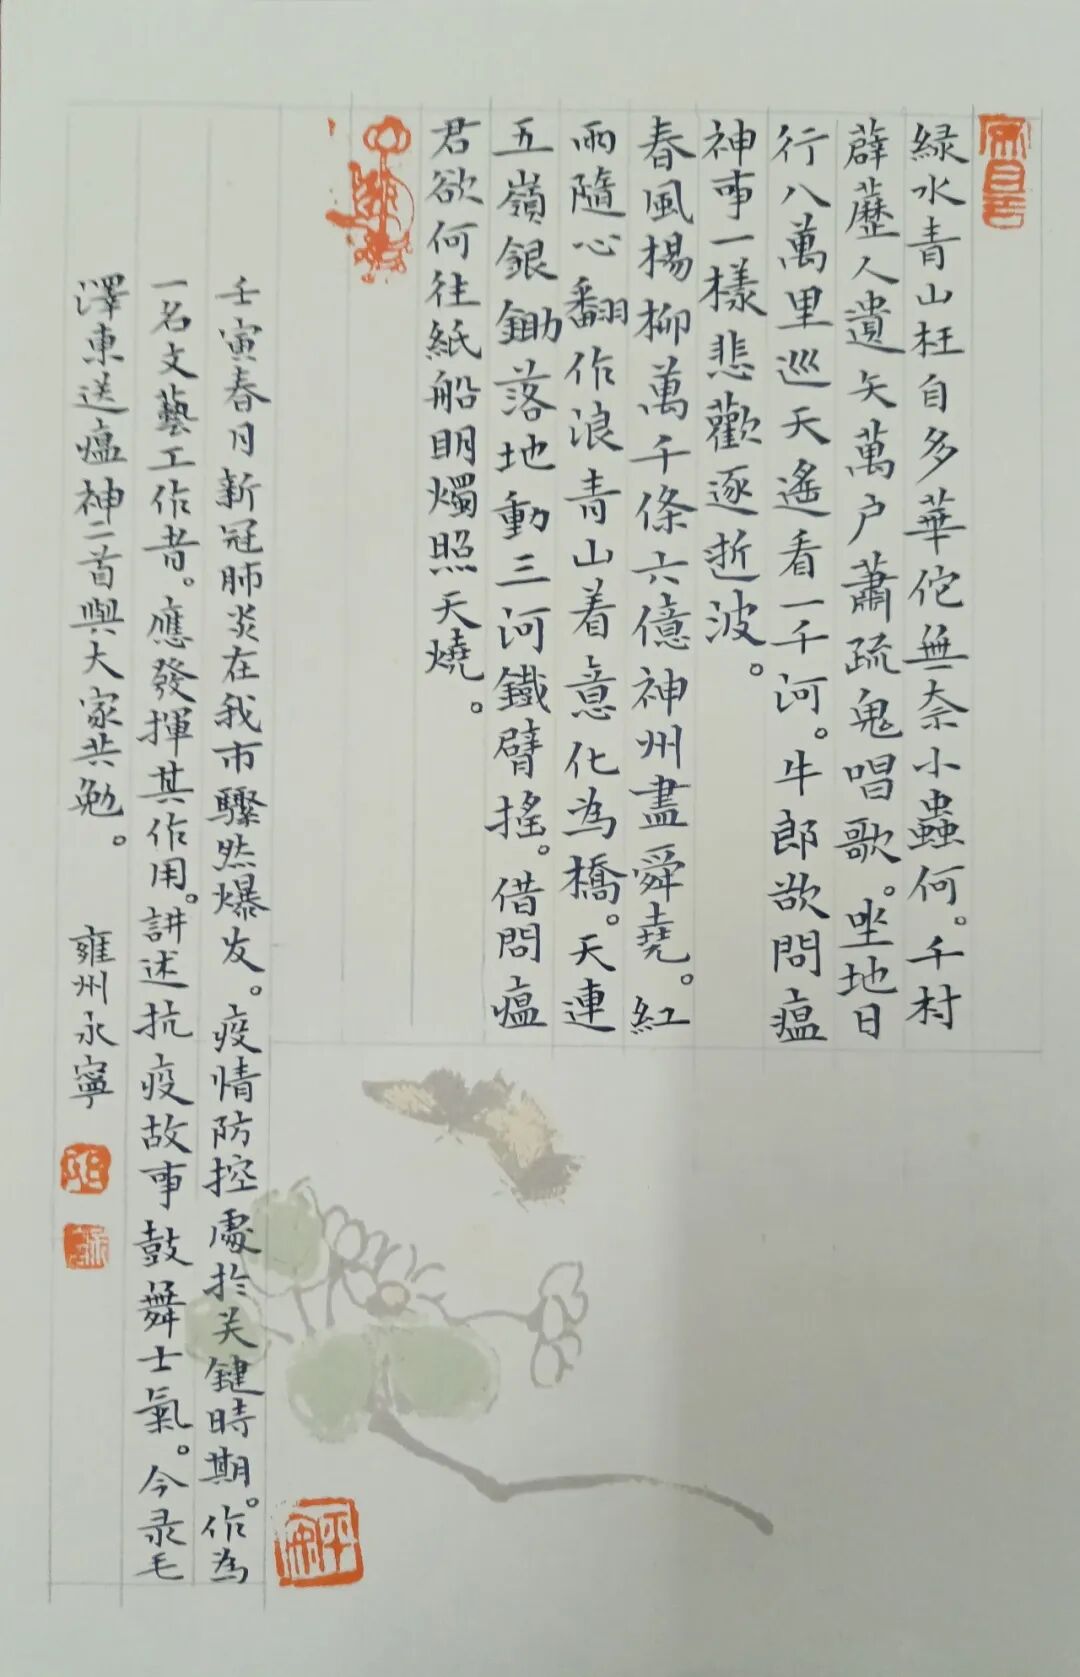 緑水青山枉自多華佗無奈小蟲何。千村
薜藶人遺矢萬户蕭疏鬼唱歌。坐地日
行八萬里巡天遙看一千河。牛郎欲問瘟
神事一樣悲歡逐逝波。
春風楊柳萬千條六億神州盡舜堯。紅
雨隨心翻作浪青山着意化為橋。天連
五嶺銀鋤落地動三河鐵臂搖。借問瘟
君欲何往紙船明燭照天燒。
壬寅春月新冠肺炎在我市驟然爆发。疫情防控處於关鍵時期。作為
一名文藝工作者。應發揮其作用。講述抗疫故事鼓舞士氣。今录毛
澤東送瘟神二首與大家共勉。 雍州永寧